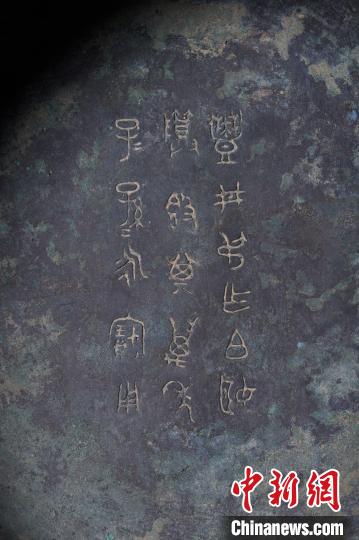 豐井叔乍白姬
尊簋其萬年
子子孫孫永寶用
中新網
Chinanews.com